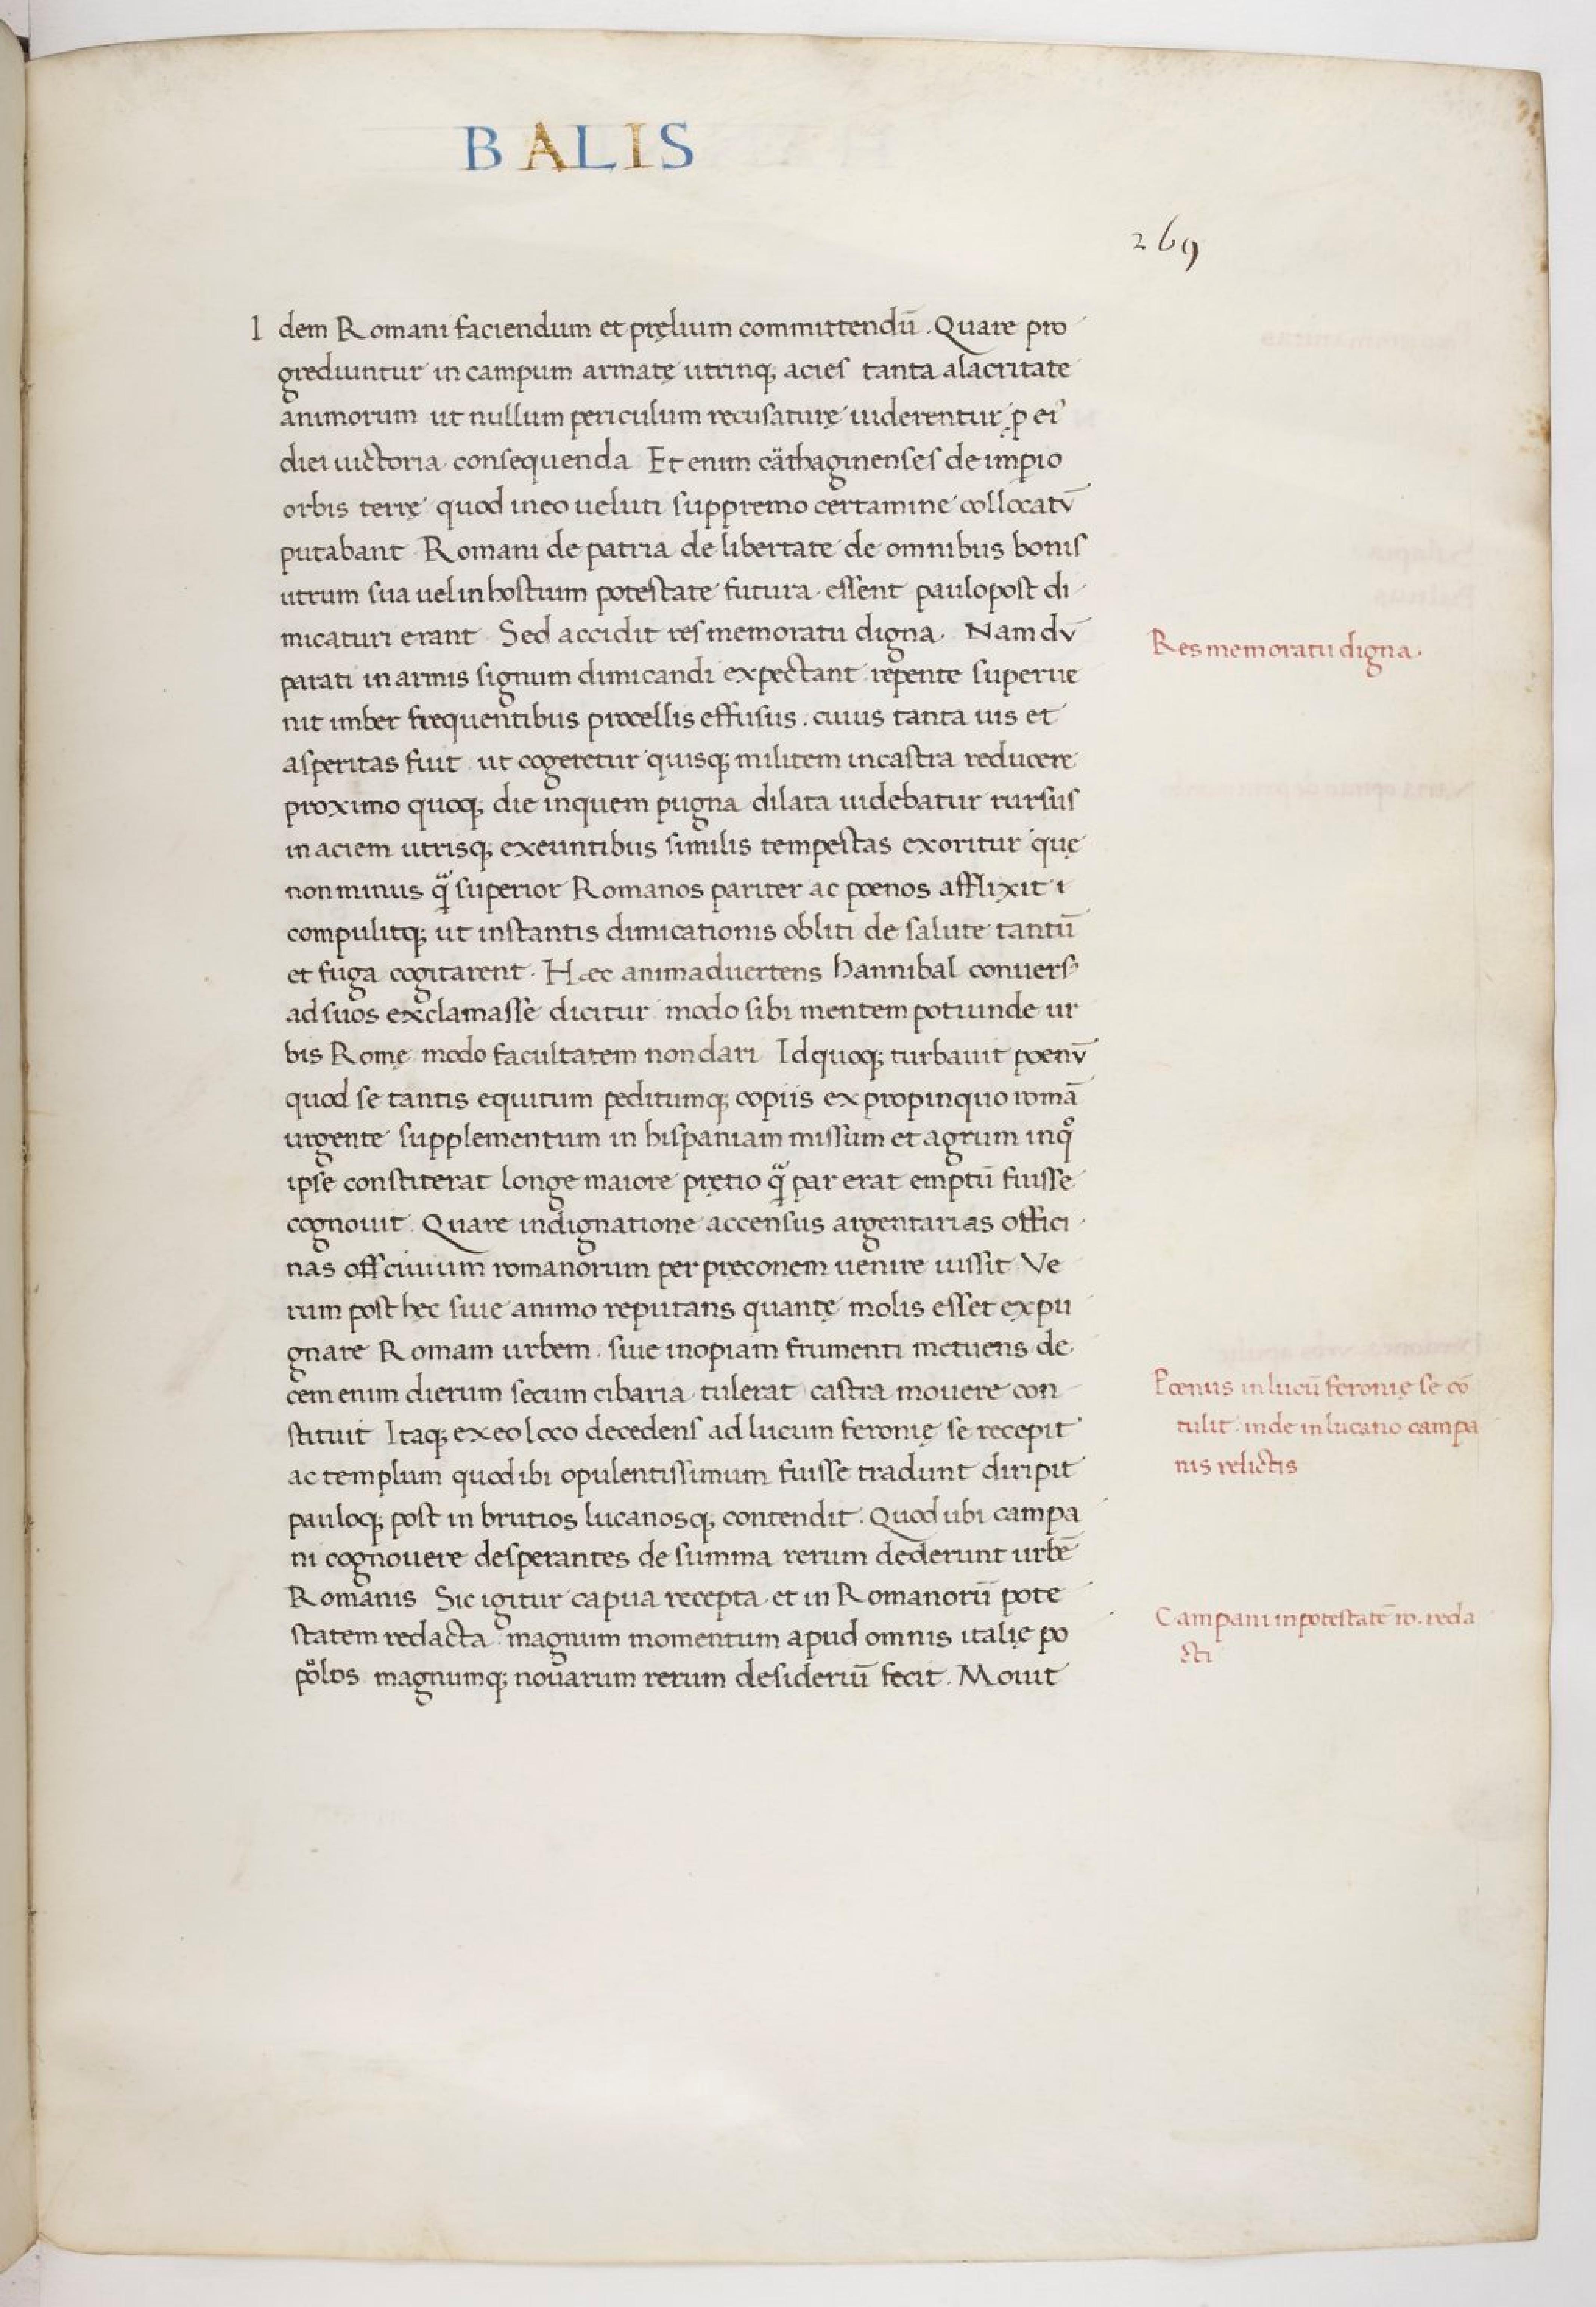 BALIS
269
Idem Romani faciendum et pręlium committendū. Quare pro
grediuntur in campum armatę utrinq; acies tanta alacritate
animorum ut nullum periculum recusaturę uiderentur p ei
diei uictoria consequenda Et enim cäthaginenses de imperio
orbis terrę quod in eo ueluti suppremo certamine collocatū
putabant Romani de patria de libertate de omnibus bonis
utrum sua uel in hostium potestate futura essent paulopost di
micaturi erant Sed accidit res memoratu digna. Nam dū
parati in armis signum dimicandi expectant repente superue
nit imber frequentibus procellis effusus. cuius tanta uis et
asperitas fuit ut cogeretur quisq; militem in castra reducere
proximo quoq; die in quem pugna dilata uidebatur rursus
in aciem utrisq; exeuntibus similis tempestas exoritur quę
non minus q̃ superior Romanos pariter ac pœnos afflixit
compulitq; ut instantis dimicationis obliti de salute tantū
et fuga cogitarent. Hæc animaduertens hannibal conuers᾽
ad suos exclamasse dicitur modo sibi mentem potiunde ur
bis Romę modo facultatem non dari Id quoq; turbauit poenū
quod se tantis equitum peditumq; copiis ex propinquo romā
urgente supplementum in hispaniam missum et agrum in qͦ
ipse constiterat longe maiore pretio q̃ par erat emptū fuisse
cognouit. Quare indignatione accensus argentarias offici
nas off ciuium romanorum per pręconem uenire iussit Ve
rum post hęc siue animo reputans quantę molis esset expu
gnare Romam urbem. siue inopiam frumenti metuens de
cem enim dierum secum cibaria tulerat castra mouere con
stituit Itaq; ex eo loco decedens ad lucum feronię se recepit
ac templum quod ibi opulentissimum fuisse tradunt diripit
pauloq; post in brutios lucanosq; contendit. Quod ubi campa
ni cognouere desperantes de summa rerum dederunt urbē
Romanis Sic igitur capua recepta et in Romanorū pote
statem redacta magnum momentum apud omnis italię po
polos magnumq; nouarum rerum desideriū fecit. Mouit
Res memoratu digna.
Pœnus in lucū feronię se cō
tulit inde in lucano campa
nis relictis
Campani in potestatē ro. reda
cti